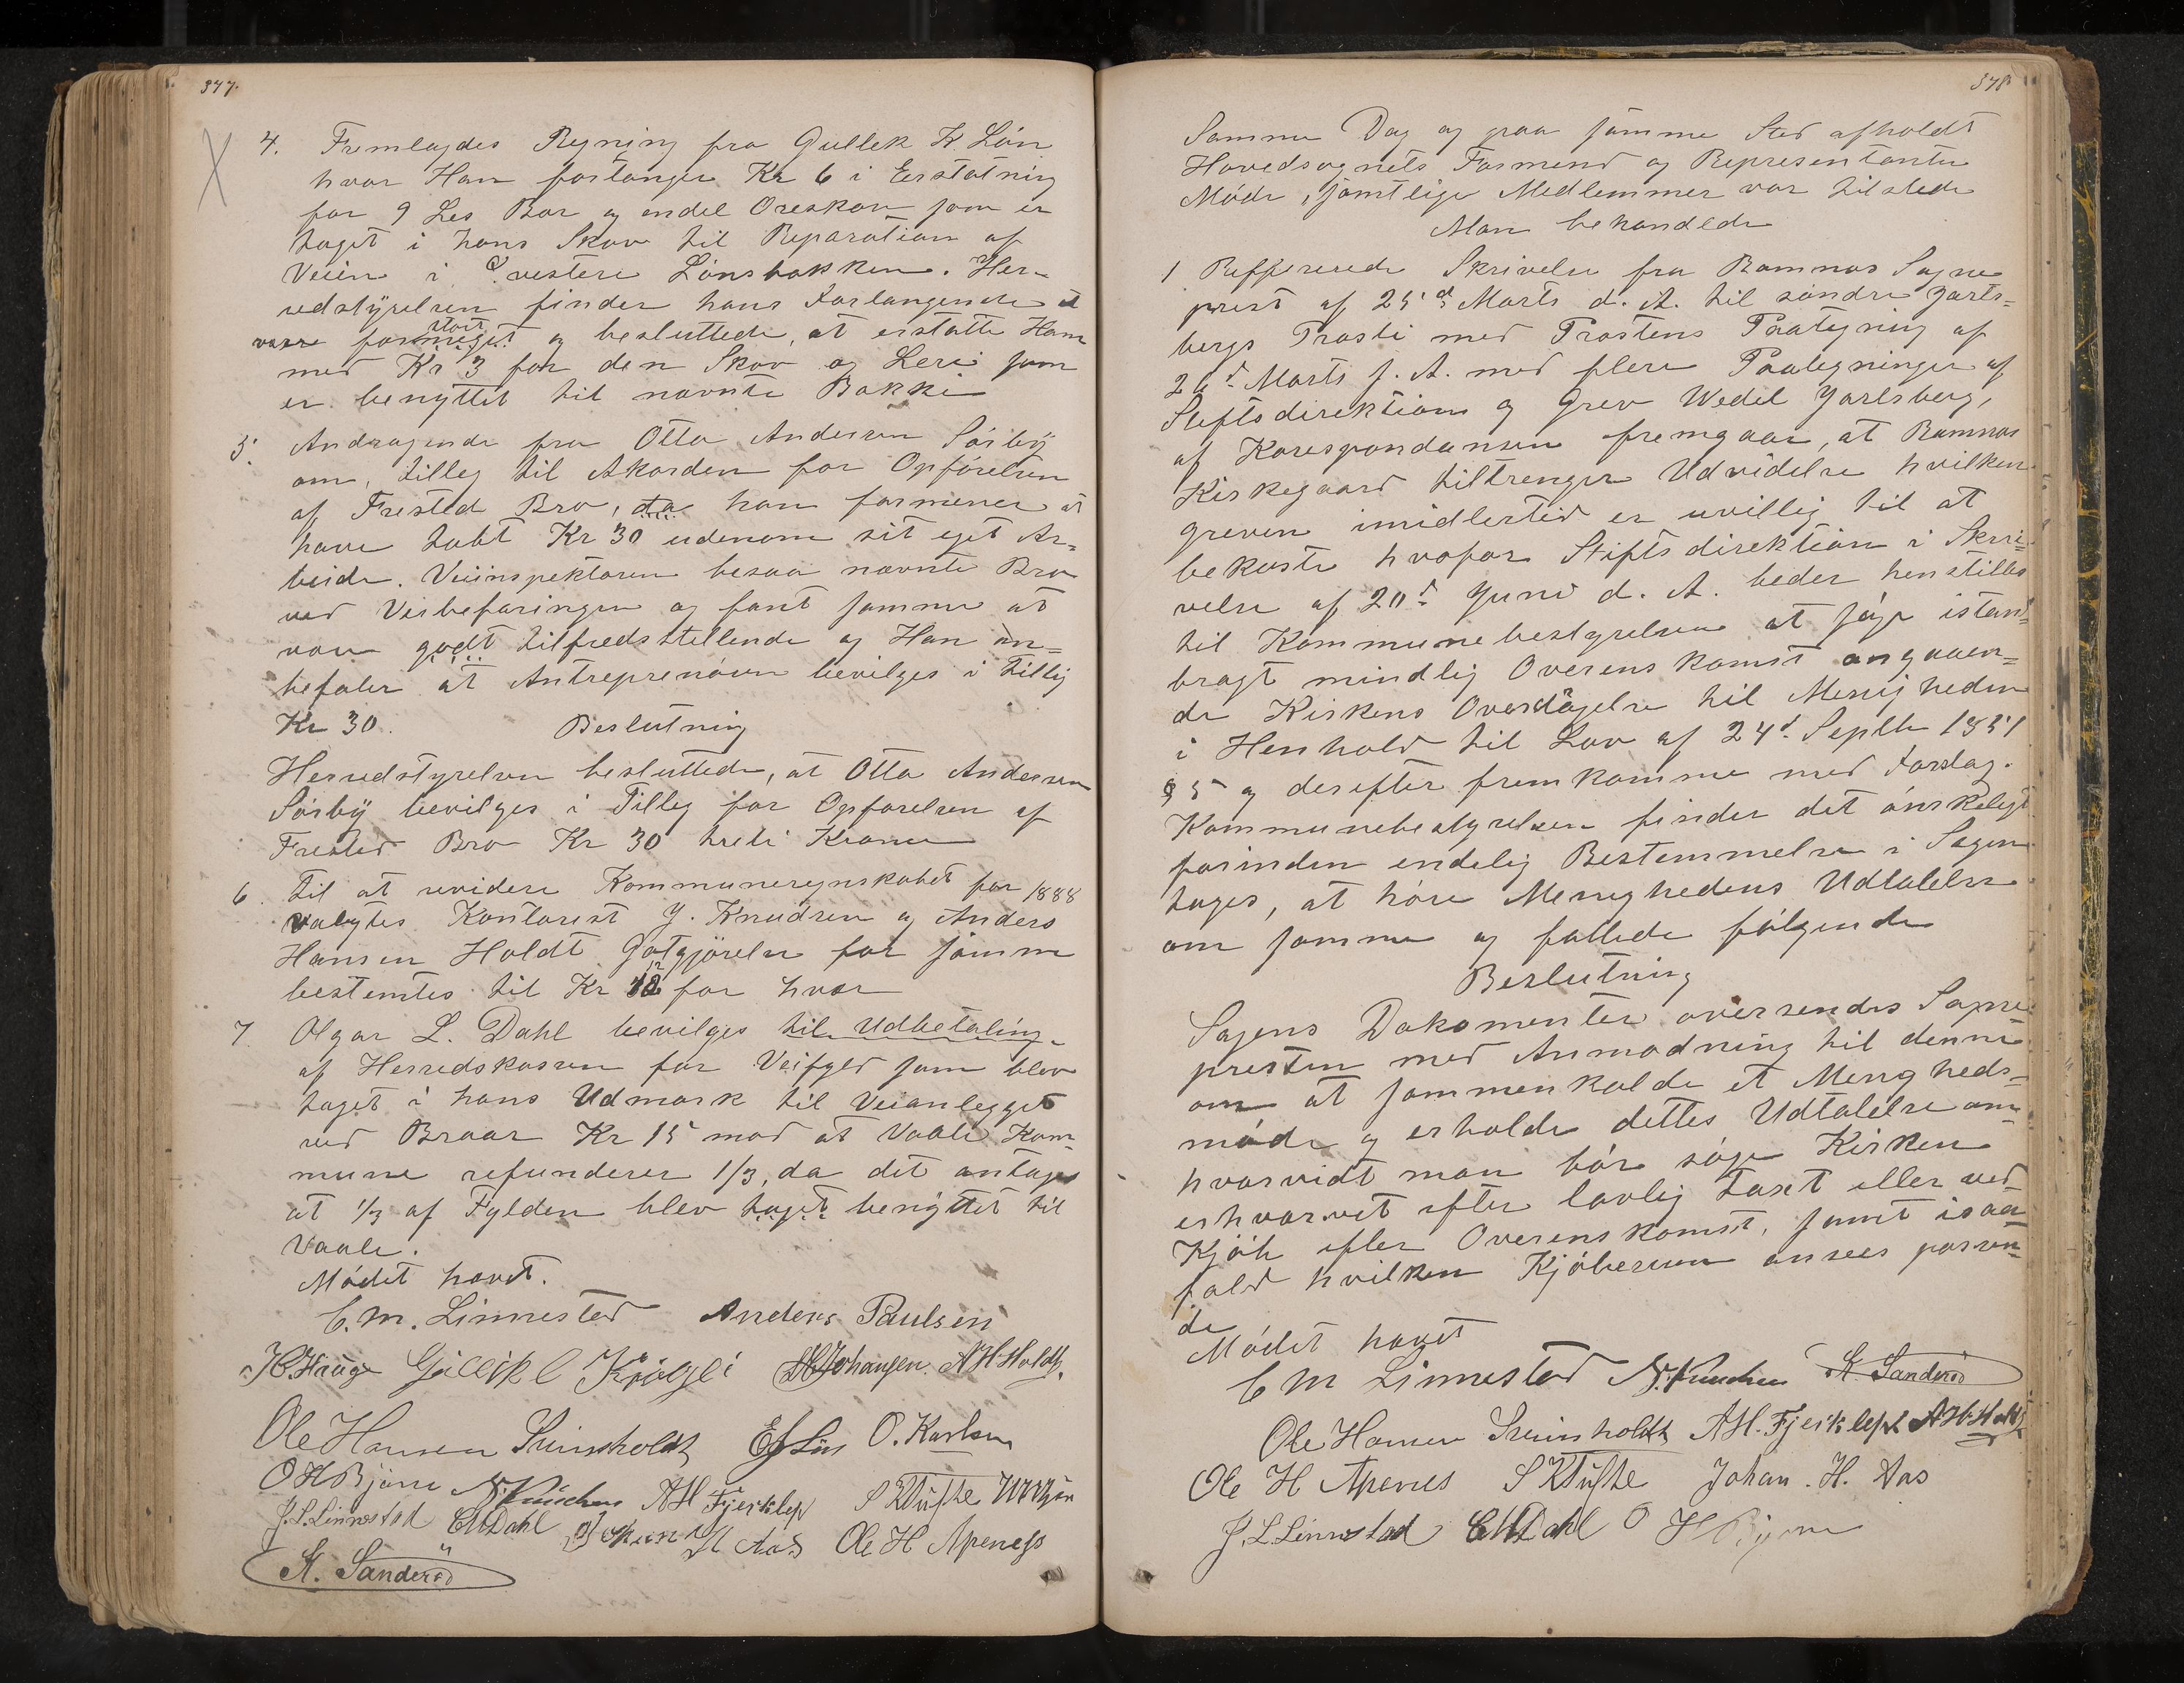 377.
4. Fremlagdes Regning fra Gullek K Lön
hvor Han forlanger Kr 6 i Erstatning
for 9 Les Bar og endel Oreskov som er
taget i hans Skov til Reparation af
Veien i vestere Lönsbakken. Her-
redstyrelsen finder hans Forlangende at
være for stort og besluttede, at erstatte Ham
med Kr 3 for den Skov og Lere som
er benyttet til nævnte Bakke
5. Andragende fra Otto Andersen Sörby
om, tilleg til Akorden for Opförelsen
af Frested Bro, da han formener at
have tabt Kr 30 udenom sit eget Ar-
beide. Veiinspektoren besaa nævnte Bro
ved Veibefaringen og fant samme at
vær godt tilfredsstellende og Han an-
befaler at Antreprenören bevilges i Tilleg
Kr 30. Beslutning
Herredstyrelsen besluttede, at Otto Andersen
Sörby bevilges i Tilleg for Opförelsen af
Frested Bro Kr 30 treti Kroner
6. Til at revidere Kommuneregnskabet for 1888
valgtes Kontorist J. Knudsen og Anders
Hansen Holdt Gotgjörelse for samme
bestemtes til Kr 12 for hvær
7. Olgar L. Dahl bevilges til Udbetaling
af Herredskassen for Veifyld som blev
taget i hans Udmark til Veianlegget
ved Braar Kr 15 mod at Vaale Kom-
mune refunderer 1/3, da det antages
at 1/3 af Fylden blev taget benyttet til
Vaale.
Mödet hævet.
C. M. Linnestad Anders Paulsen
H. Hauge Gullik L Krögli Johansen. A H Holdt.
Ole Hansen Sveinsholdt O. Karlsen
O H Bjørne N. Knudsen A H Fjerkslep S K Tufte
J. L. Linnestad C M Dahl Johan H Aas Ole H Apeness
A. Sanderöd
378
Samme Dag og paa samme Sted afholdt
Hovedsognets Formend og Representanter
Möde, samtlige Medlemmer var tilstede
Man behandlede
1 Reffererede Skrivelse fra Ramnes Sogne
prest af 25d Marts d. A. til söndre Jarls-
bergs Prosti med Prostens Paategning af
26d Marts s. A. med flere Paategninger af
Stiftsdirektion og Grev Wedel Jarlsberg,
af Korespondansen fremgaar, at Ramnes
Kirkegaard tiltrenger Udvidelse hvilken
greven imidlertid er uvillig til at
bekoste hvofor Stiftsdirektion i Skri-
velse af 20d Juni d. A. beder henstilles
til Kommunebestyrelsen at søge istan-
bragt mindlig Overenskomst angaaen-
de Kirkens Overdragelse til Menigheden
i Henhold til Lov af 24d Septb 1851
§ 5 og derefter fremkomme med Forslag.
Kommunebestyrelsen finder det önskeligt
forinden endelig Bestemmelse i Sagen
tages, at höre Menighedens Udtalelse
om samme og fattede fölgende
Beslutning
Sagens Dokomenter oversendes Sogne-
presten med Anmodning til denne
om at sammenkalde et Menigheds-
möde og erholde dettes Udtalelse om
hvorvidt man bör söge Kirken
erhvorvet efter lovlig taxt eller ved
Kjöb efter Overenskomst, samt isaa-
fald hvilken Kjöbesum ansees passen-
de
Mödet hævet
C M Linnestad N. Knudsen A. Sanderöd
Ole Hansen Sveinsholdt A H. Fjerkslep A H Holdt
Ole H Apenes S K Tufte Johan. H. Aas
J. L. Linnestad C M Dahl O H Bjørne